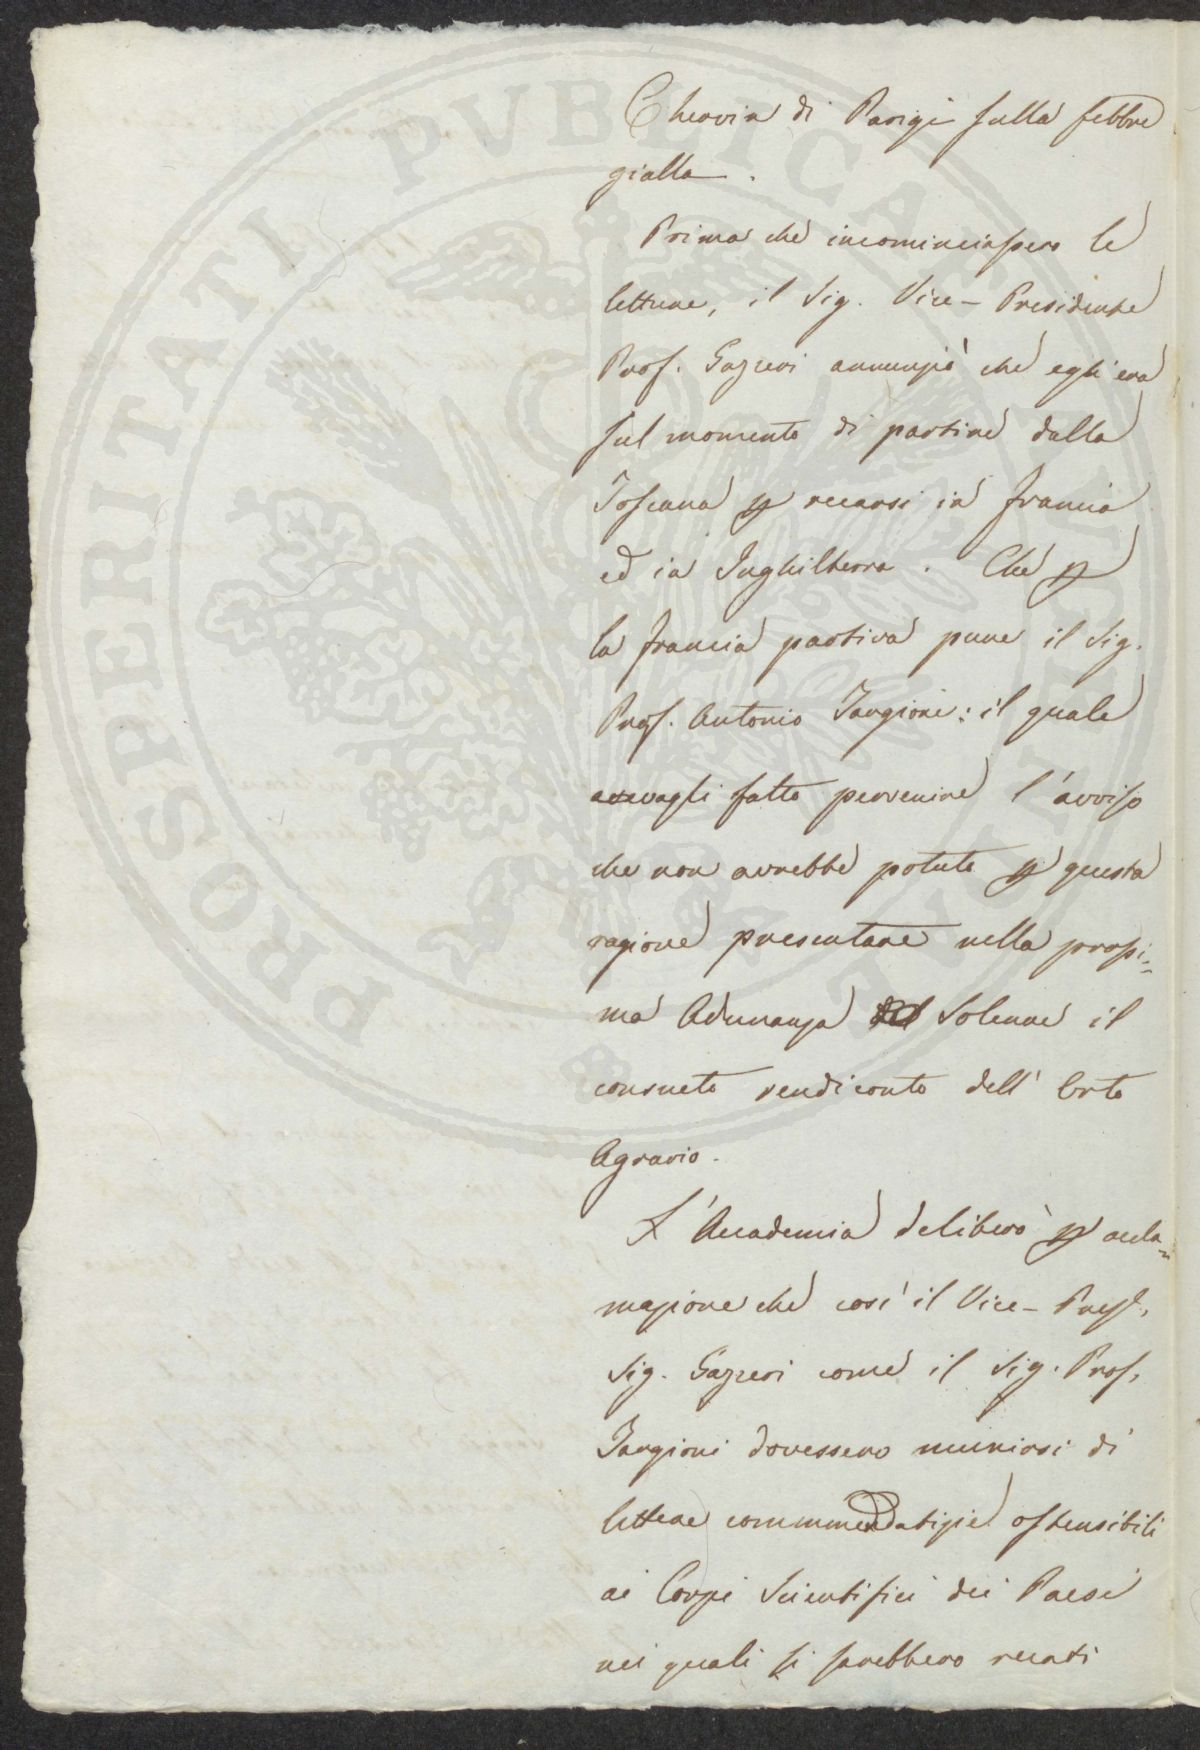 Chervin di Parigi sulla febbre
gialla.
Prima che incominciassero le
letture, il Sig. Vice-Presidente
Prof. Gazzeri annunziò che egli era
sul momento di partire dalla
Toscana p recarsi in Francia
ed in Inghilterra. Che p
la Francia partiva pure il Sig.
Prof. Antonio Targioni: il quale
avevagli fatto pervenire l'avviso
che non avrebbe potuto p questa
ragione presentare nella prossi=
ma Adunanza Solenne il
consueto rendiconto dell'Orto
Agrario.
L'Accademia deliberò p accla=
mazione che così il Vice-Presid.
Sig. Gazzeri come il Sig. Prof.
Targioni dovessero munirsi di
lettere commendatizie ostensibili
ai Corpi Scientifici dei Paesi
nei quali si sarebbero recati
PROSPERITATI PVBLICAE AVGENDAE